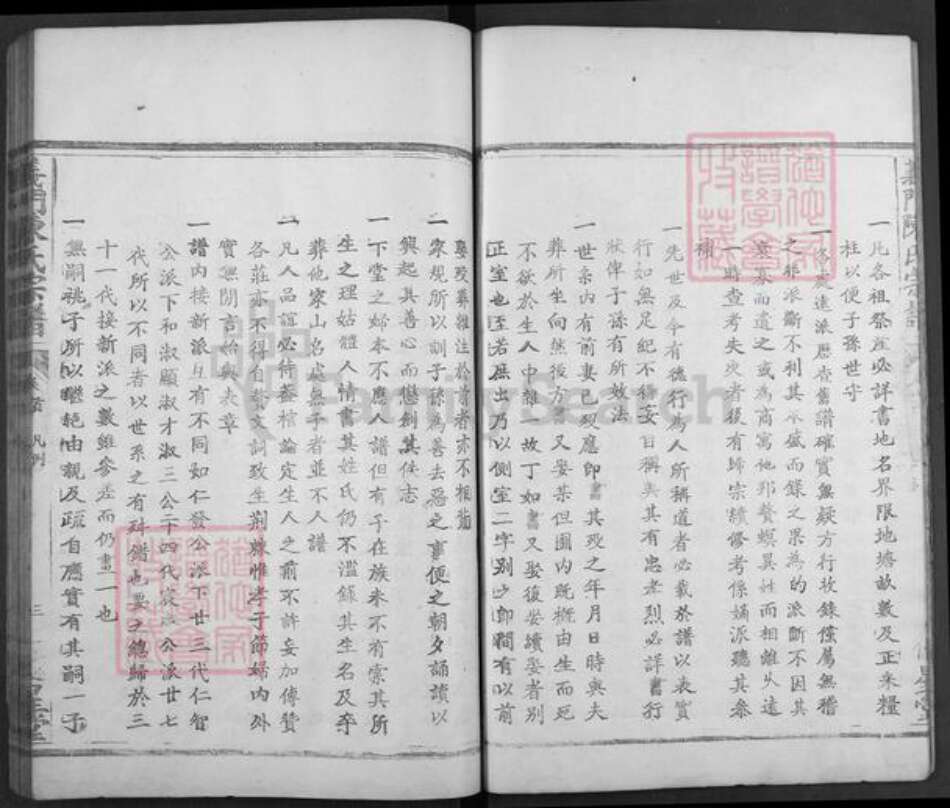 義門陳氏宗譜
一凡各祖祭產必詳書地名界限地塘畝數及正米糧
柱以便子孫世守
一各處遠派曆查舊譜確實無疑方行收錄僅屬無稽
之非派斷不利其水盛而錄之果為的派斷不因其
衰寡而遺之或為商寓他邦贅螟異姓而相離遠
一時查考失次者後有歸宗續修考係嫡派聽其叅
補
一先世及今有德行為人所稱道者必載於譜以表實
行如無足紀不得妄自稱美其有忠孝烈必詳書行
狀俾子孫有所效法
一世系內有前妻已歿應即書其歿之年月日時與夫
葬所坐向然後方書又娶某但圖內既概由生而死
不欲於生人中雜一故丁如書又娶復娶續娶者別
正室也至若庶出乃以側室二字別之即間有以前
娶歿葬雜注於前者亦不相淆
一家規所以訓子孫為善去惡之事便之朝夕誦讀以
興起其善心而懲創其佚志
一下堂之婦本不應入譜但有子在族未不有索其所
生之理姑體人情書其姓氏仍不濫錄其生名及卒
葬他家山名處無子者並不入譜
一凡人品誼必待蓋棺論定生人之前不許妄加傳贊
各莊亦不得自製文詞致生荊棘惟孝子節婦內外
實無間言始與表章
一譜內接新派互有不同如仁發公派下廿三代仁智
公派下和淑願淑才淑三公二十四代宸公派廿七
代所以不同者以世系之有舛錯也要之總歸於三
十一代接新派之數維參差而仍書一也
一無嗣祧子所以繼絕由親及疏自應實有其嗣一子
義門陳氏宗譜
卷首 凡例
三
FamilySearch